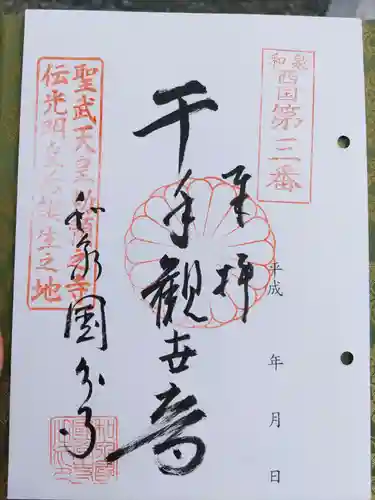 和泉
西国第三番
奉拝
平成 年 月 日
千手觀世音
和泉國分寺
聖武天皇勅願之寺
伝光明皇后誕生之地